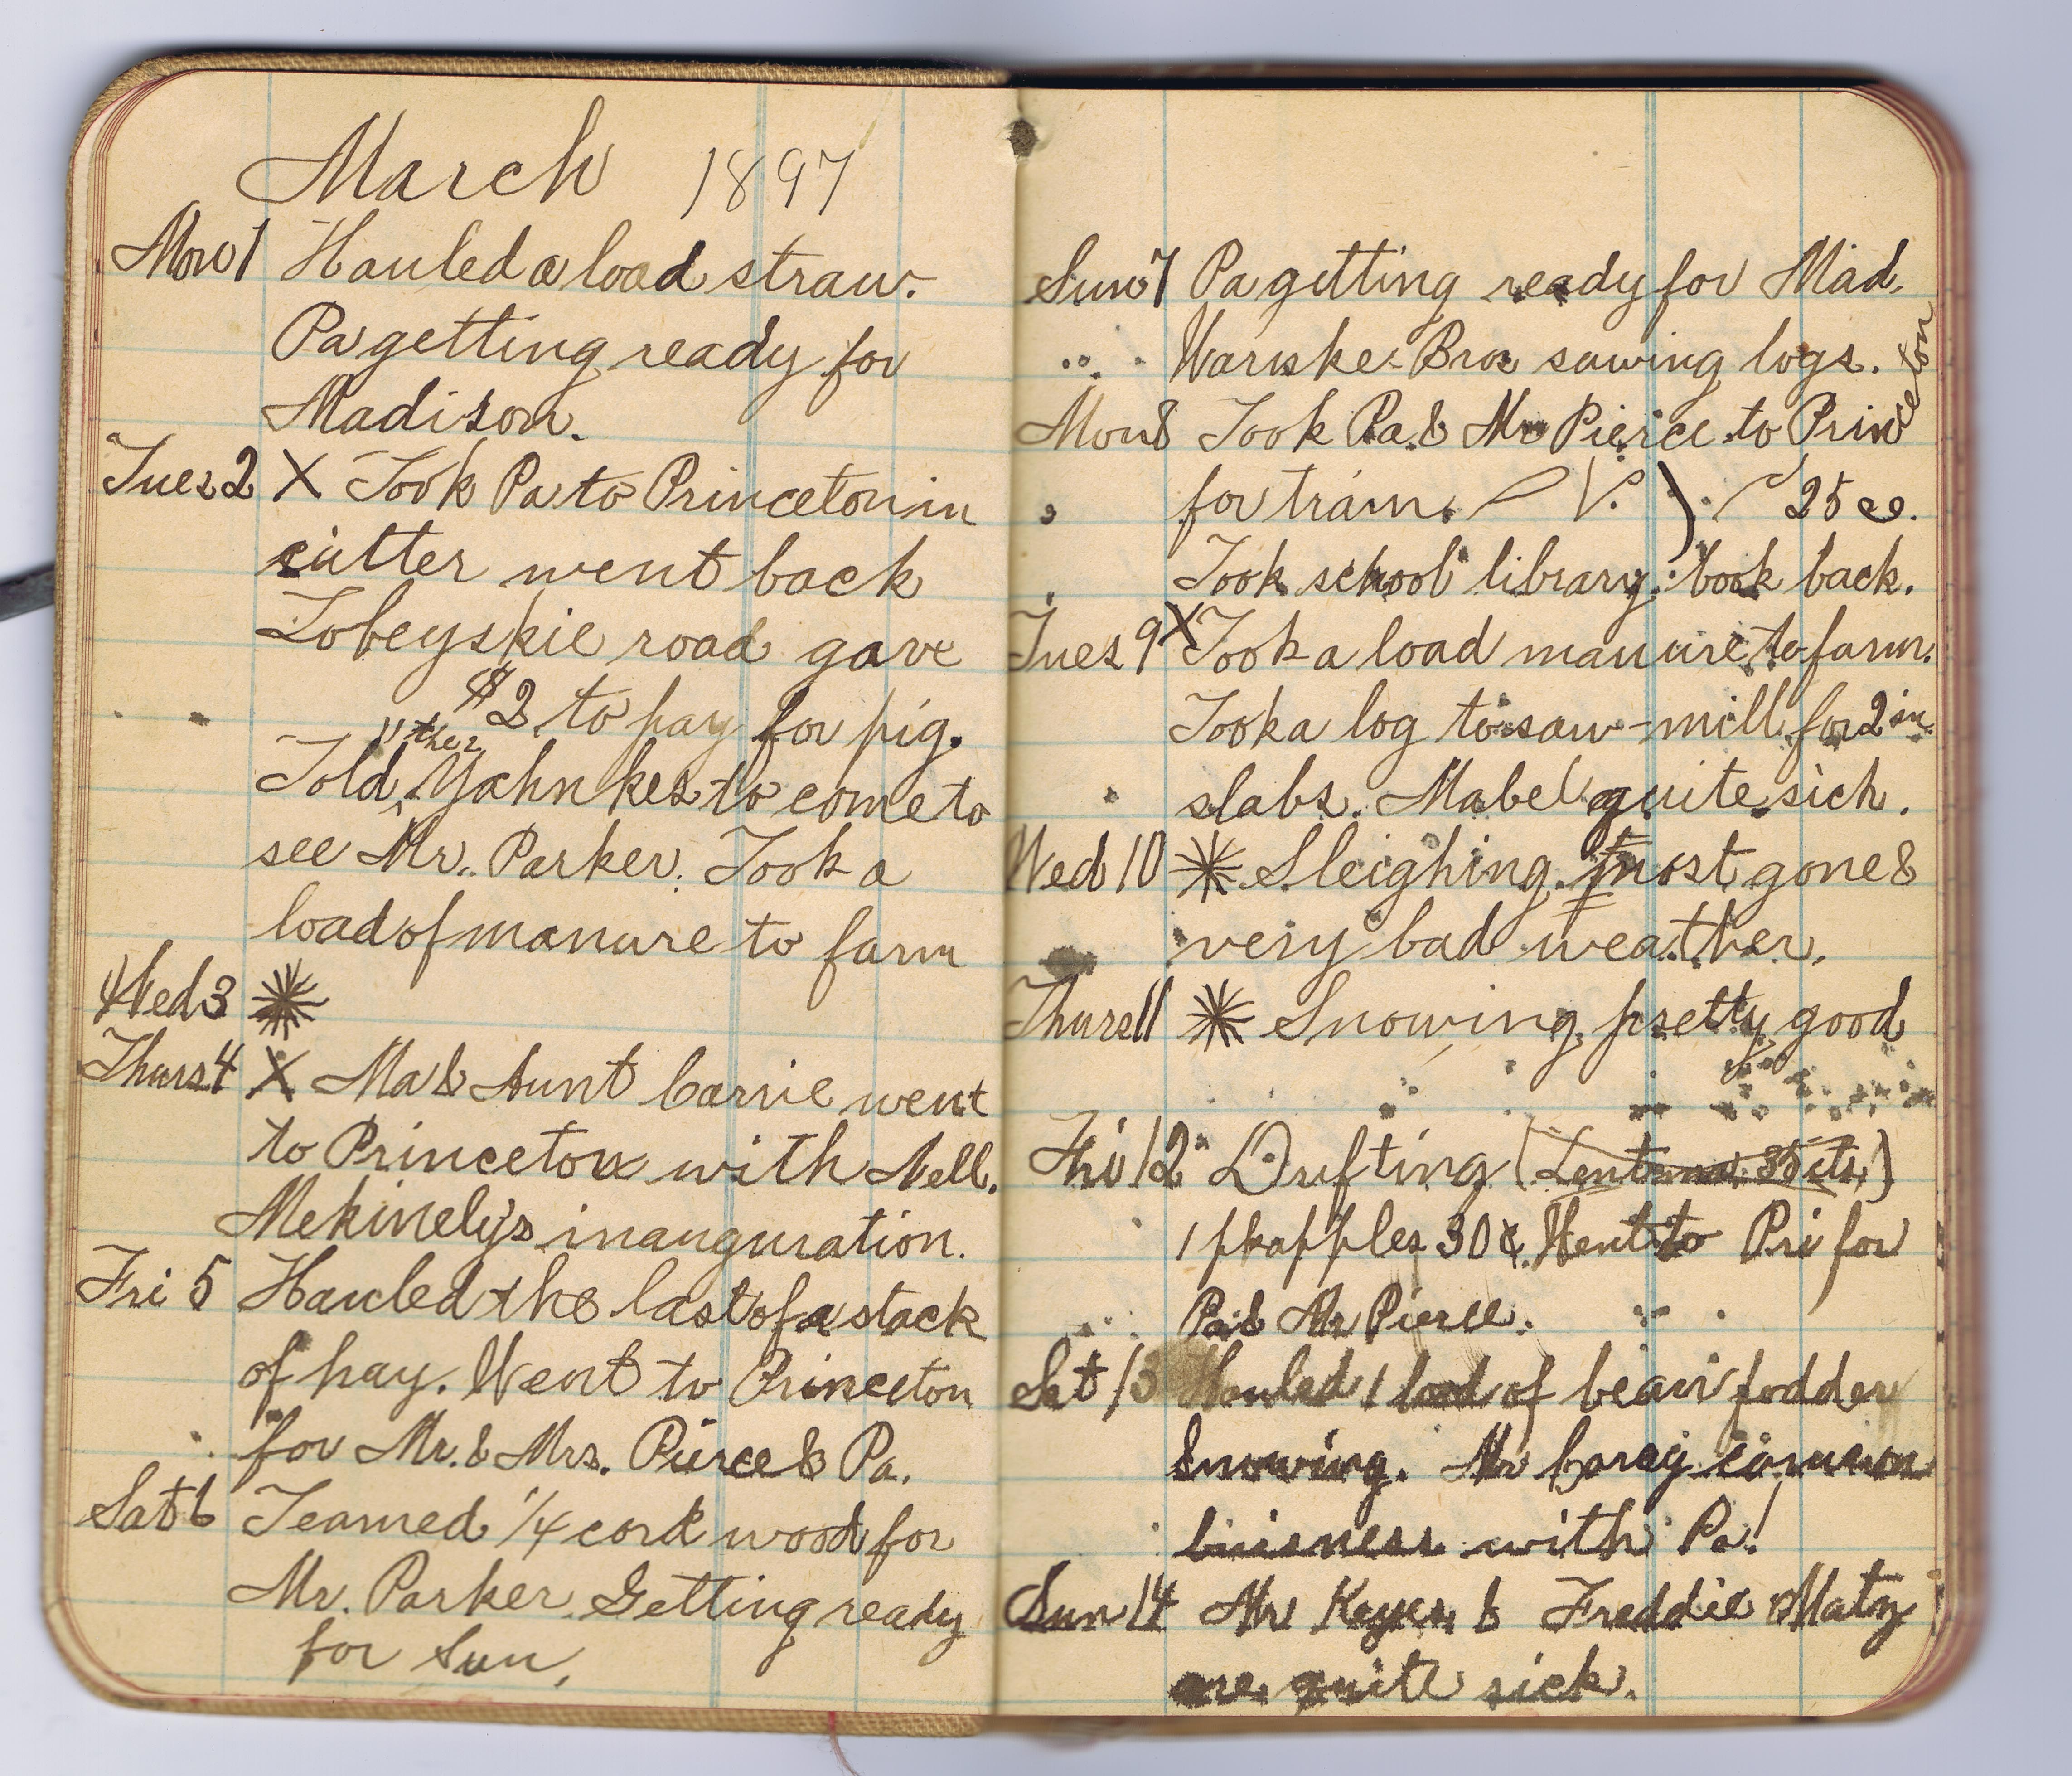 March 1897
Mon 1 Hauled a load straw.
Pa getting ready for
Madison.
Tues 2 X Took Pa to Princeton in
cutter went back
Lobeyskie road gave
$2 to pay for pig.
" the 2
Told Yahnkes to come to
see Mr. Parker. Took a
load of manure to farm
Wed 3
Thurs 4 X Ma & Aunt Carrie went
to Princeton with Nell.
Mekinely's inauguration.
Fri 5 Hauled the last of a stack
of hay. Went to Princeton
for Mr. & Mrs. Pierce & Pa.
Sat 6 Teamed 1/4 cord wood for
Mr. Parker. Getting ready
for Sun.
Sun 7 Pa getting ready for Mad.
Warnke Bros sawing logs.
Mon 8 Took Pa & Mr Pierce to Princeton
for train. 25
Took school library book back.
Tues 9 X Took a load manure to farm.
Took a log to saw-mill for 2 in.
slabs. Mabel quite sick.
Wed 10 Sleighing most gone &
very bad weather.
Thurs 11 Snowing pretty good
Fri 12 Drifting (Lentern 35 cts.)
1 pk apples 30¢. Went to Pri for
Pa & Mr Pierce.
Sat 13 Hauled 1 load of bean fodder
Snowing. Mr came on
buisness with Pa!
Sun 14 Mr Keyes & Freddie Matz
are quite sick.